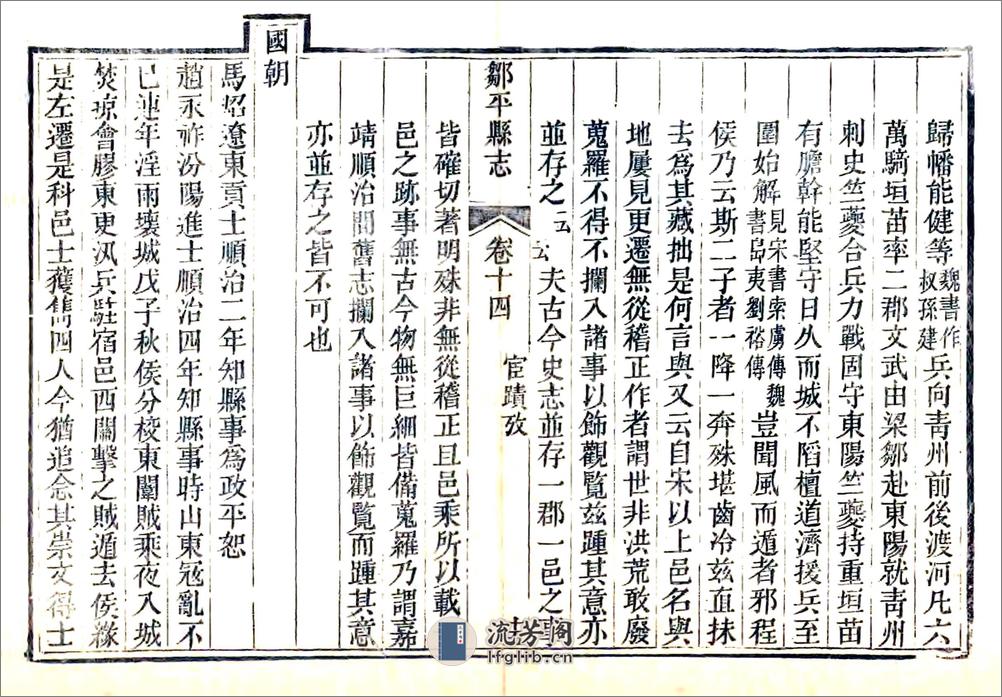 歸幡能健等魏書作叔孫建兵向靑州前後渡河凡六
萬騎垣苗率二郡文武由梁鄒赴東陽就靑州
刺史竺夔合兵力戰固守東陽竺夔持重垣苗
有膽幹能堅守日久而城不䧟檀道濟援兵至
圍始解見宋書索虜傳魏書島夷劉裕傳豈聞風而遁者邪程
侯乃云斯二子者一降一奔殊堪齒冷兹直抹
去為其藏拙是何言與又云自宋以上邑名與
地屢見更遷無從稽正作者謂世非洪荒敢廢
蒐羅不得不攔入諸事以飾觀覧兹踵其意亦
並存之云云夫古今史志並存一郡一邑之
鄒平縣志 卷十四 宦蹟攷
皆確切著明殊非無從稽正且邑乘所以載
邑之跡事無古今物無巨細皆備蒐羅乃謂嘉
靖順治間舊志攔入諸事以飾觀覧而踵其意
亦並存之皆不可也
國朝
馬炤遼東貢士順治二年知縣事為政平恕
趙永祚汾陽進士順治四年知縣事時山東寇亂不
已連年淫雨壞城戊子秋侯分校東闈賊乘夜入城
焚掠會膠東吏汎兵駐宿邑西關擊之賊遁去侯緣
是左遷是科邑士獲雋四人今猶追念其崇文得士
流芳阁
lfglib.cn